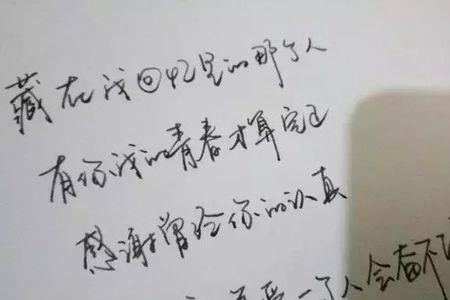 藏在我回忆里的那个人
有你我的青春才算完整
感谢曾给你的认真
一个人会奋不